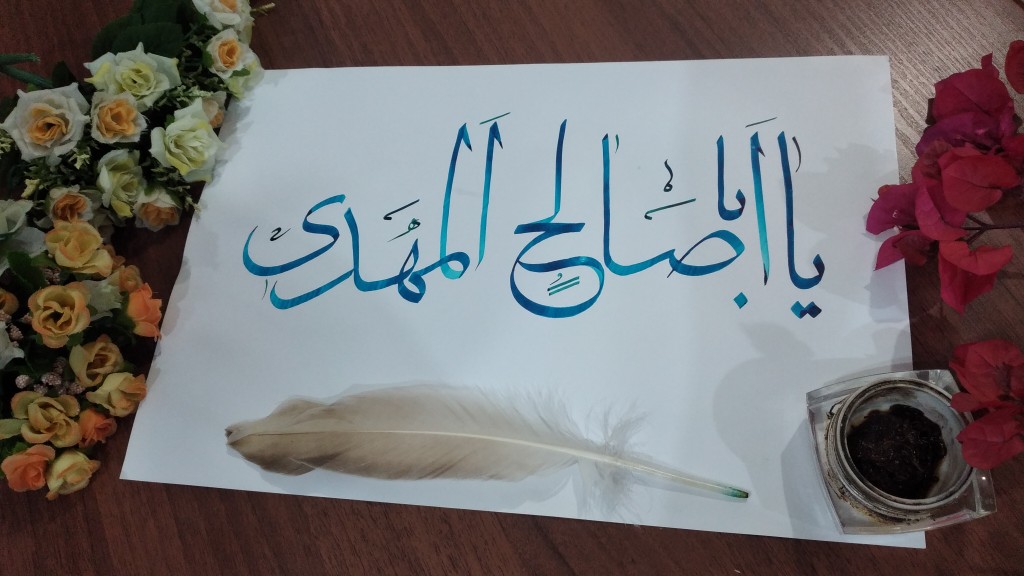 یا اَبا صالِحٍ المَهدی